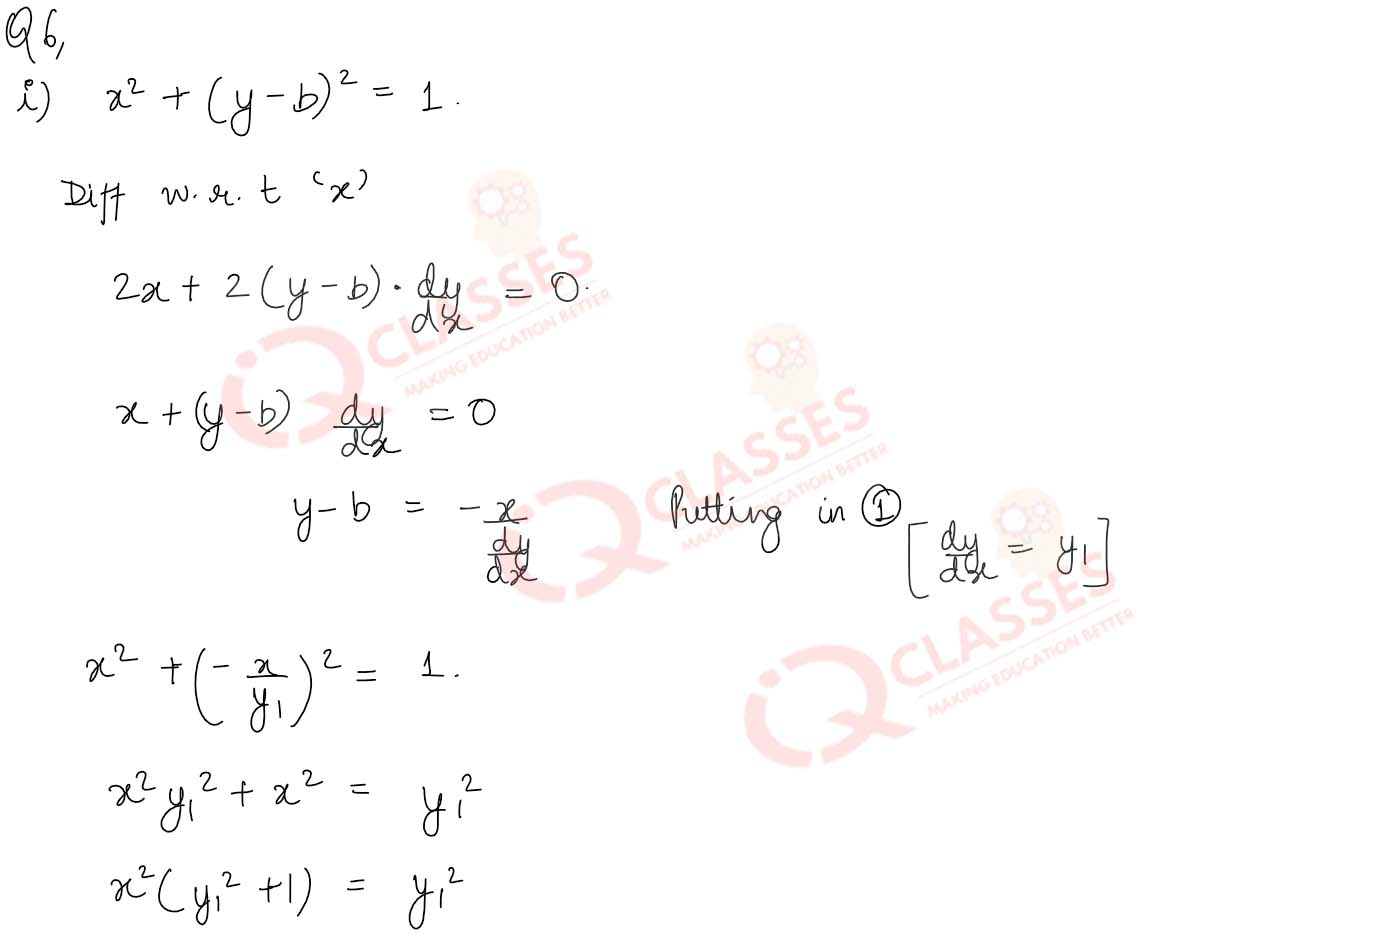 Q6,
i) x² + (y-b)² = 1.
Diff w.r.t 'x'
2x + 2(y-b) · dy/dx = 0.
x + (y-b) dy/dx = 0
y-b = -x/(dy/dx) Putting in ① [dy/dx = y₁]
x² + (-x/y₁)² = 1.
x²y₁² + x² = y₁²
x²(y₁² + 1) = y₁²
iQ CLASSES
MAKING EDUCATION BETTER
iQ CLASSES
MAKING EDUCATION BETTER
iQ CLASSES
MAKING EDUCATION BETTER